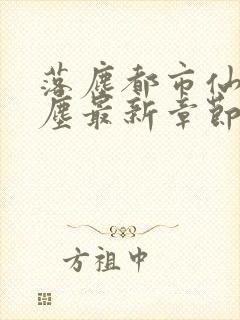 落塵都市仙
塵最新章節
方祖中